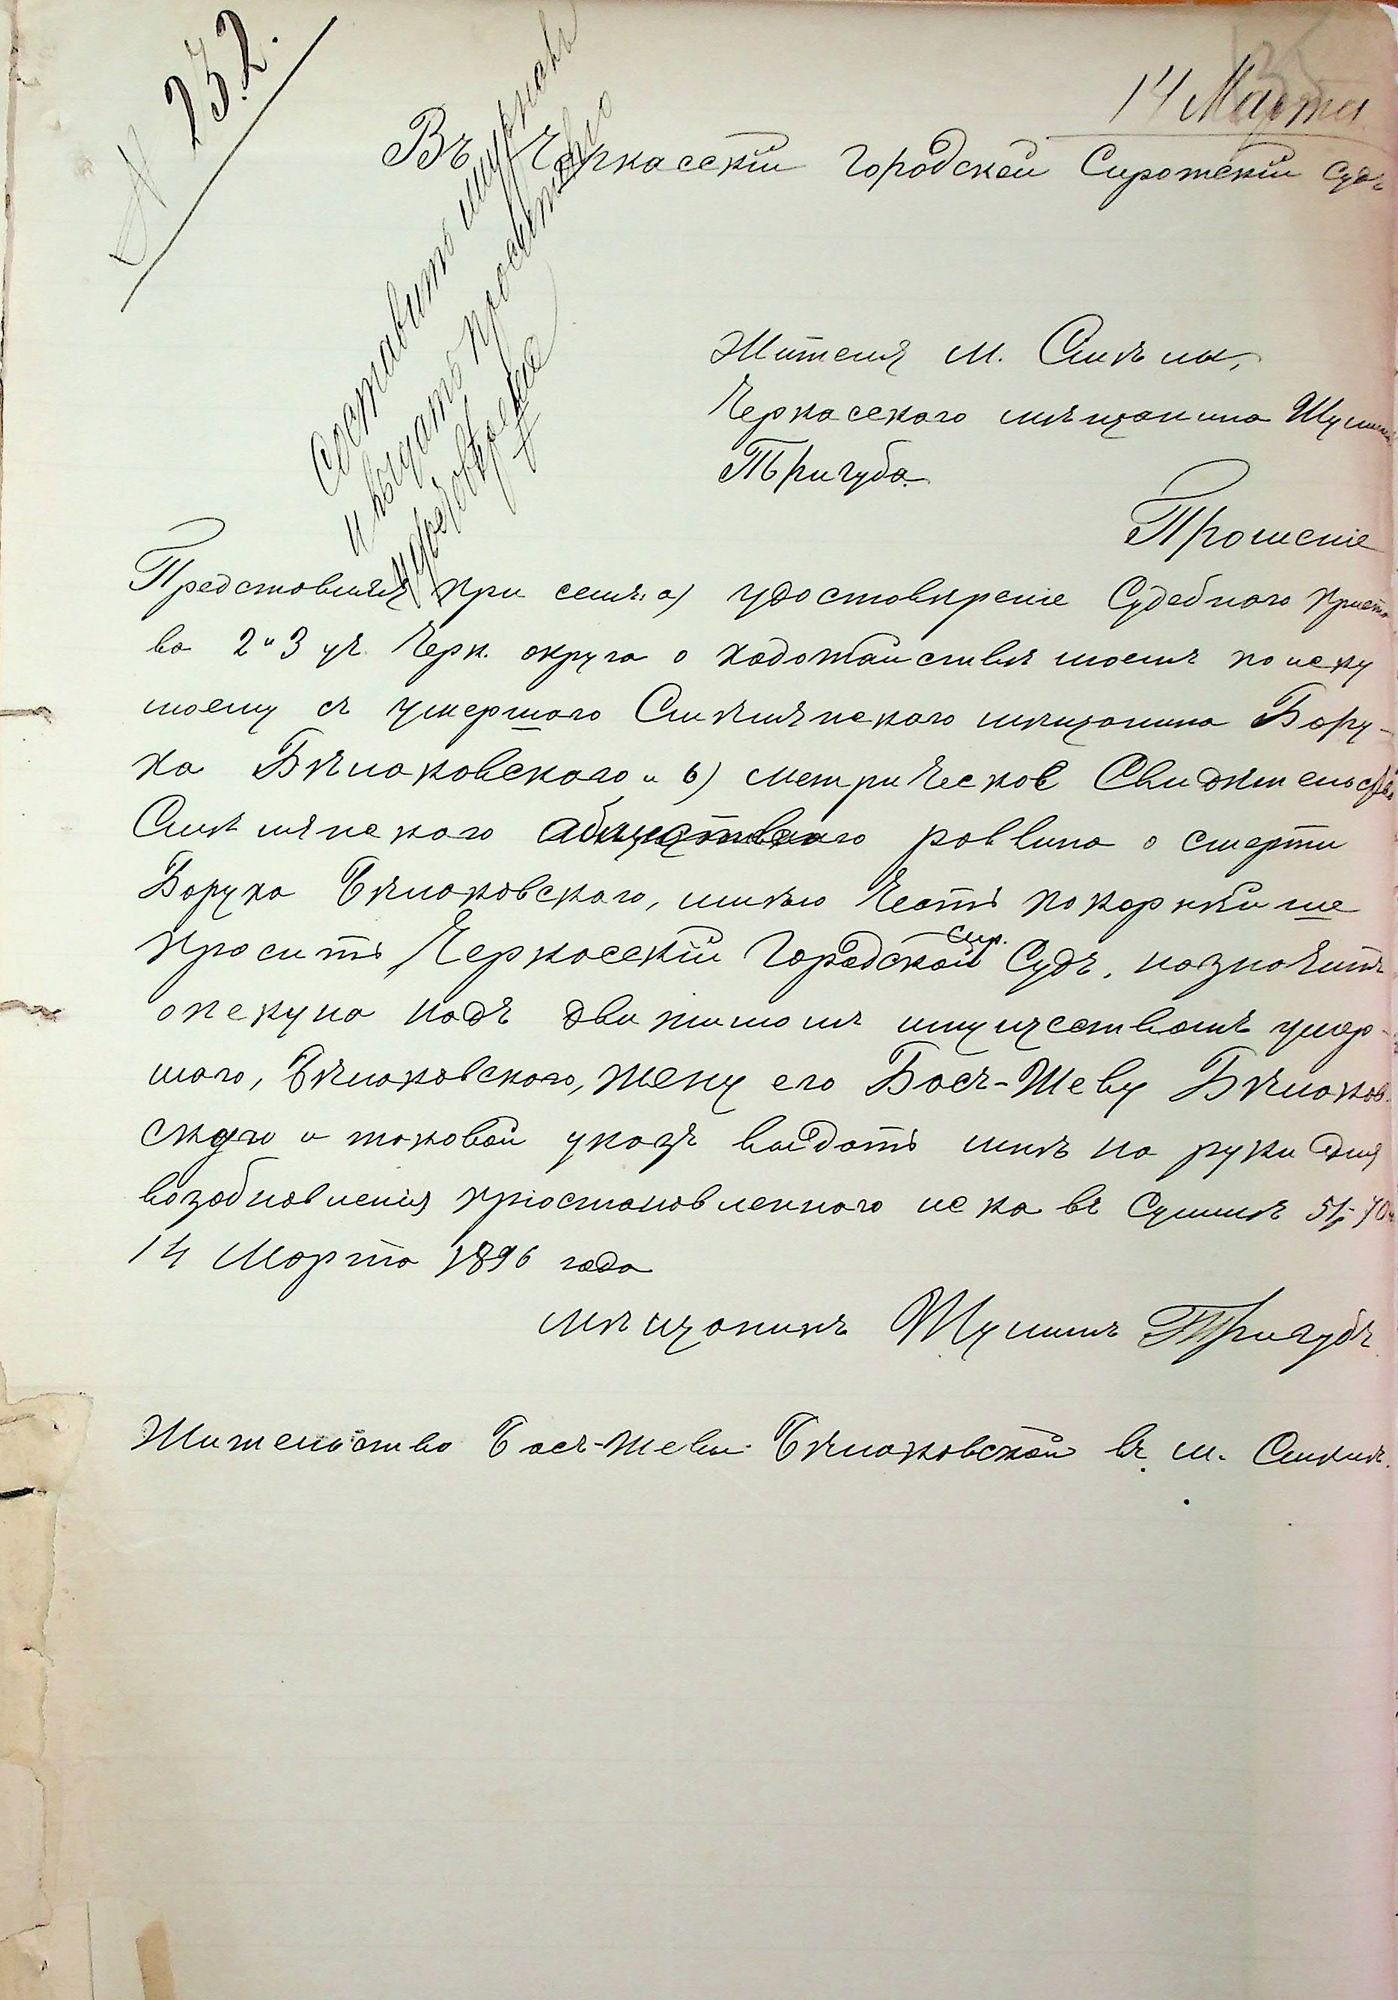 № 232.
14 Марта
Въ Черкасскій Городской Сиротскій Судъ
Составить журналъ
и выдать просителю
удостовѣреніе
Жителя м. Смѣлы,
Черкасскаго мѣщанина Шулима
Тригуба
Прошеніе
Представляя при семъ: а) удостовѣреніе Судебного приста-
ва 2 и 3 уч. Черк. округа о ходатайствѣ моемъ по иску
моему съ умершого Смѣлянского мѣщанина Бору-
ха Бѣлаковского и б) метрическое Свидѣтельство
Смѣлянского общественного раввина о смерти
Боруха Бѣлаковского, имѣю честь покорнѣйше
просить Черкасскій Городской Сир. Судъ, назначить
опекуна надъ движимомъ имуществомъ умер-
шого, Бѣлаковского, жену его Бася-Шеву Бѣлаков-
скую и таковой указъ выдать мнѣ на руки для
возобновленія пріостановленного иска въ Суммѣ 51 р.
14 Марта 1896 года
Мѣщанинъ Шулимъ Тригубъ
Жительство Бася-Шевы Бѣлаковской въ м. Смѣлѣ.